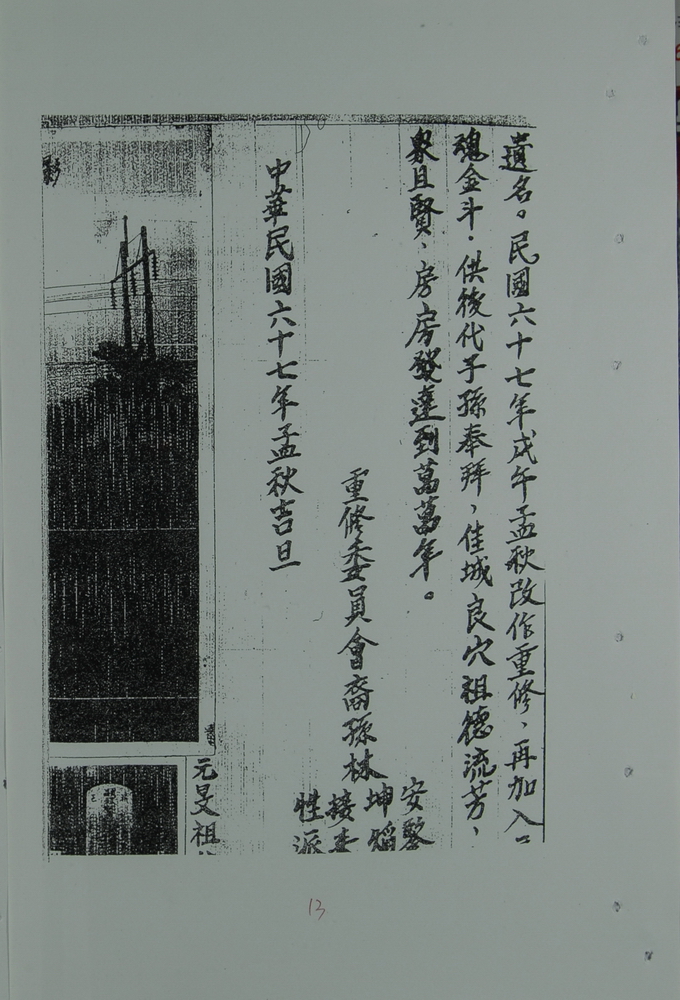 遺名。民國六十七年戊午孟秋改作重修，再加入
魂金斗．供後代子孫奉拜，佳城良穴祖德流芳，
衆且賢、房房發達到萬萬年。
重修委員會裔孫林
安
坤
接
性派
中華民國六十七年孟秋吉旦
影
元旻祖
13